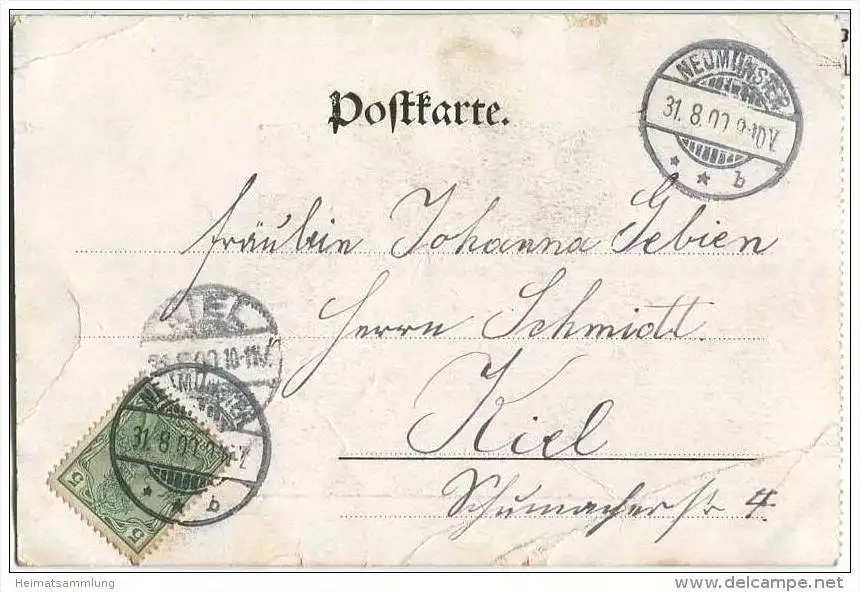 Postkarte.
NEUMÜNSTER
31. 8. 00 9-10V.
b
Fräulein Johanna Gebien
Herrn Schmidt.
Kiel
Schumacherstr 4
KIEL
31.8.00 10-11V.
NEUMÜNSTER
31. 8. 00
b
5
5
Heimatsammlung
www.delcampe.net